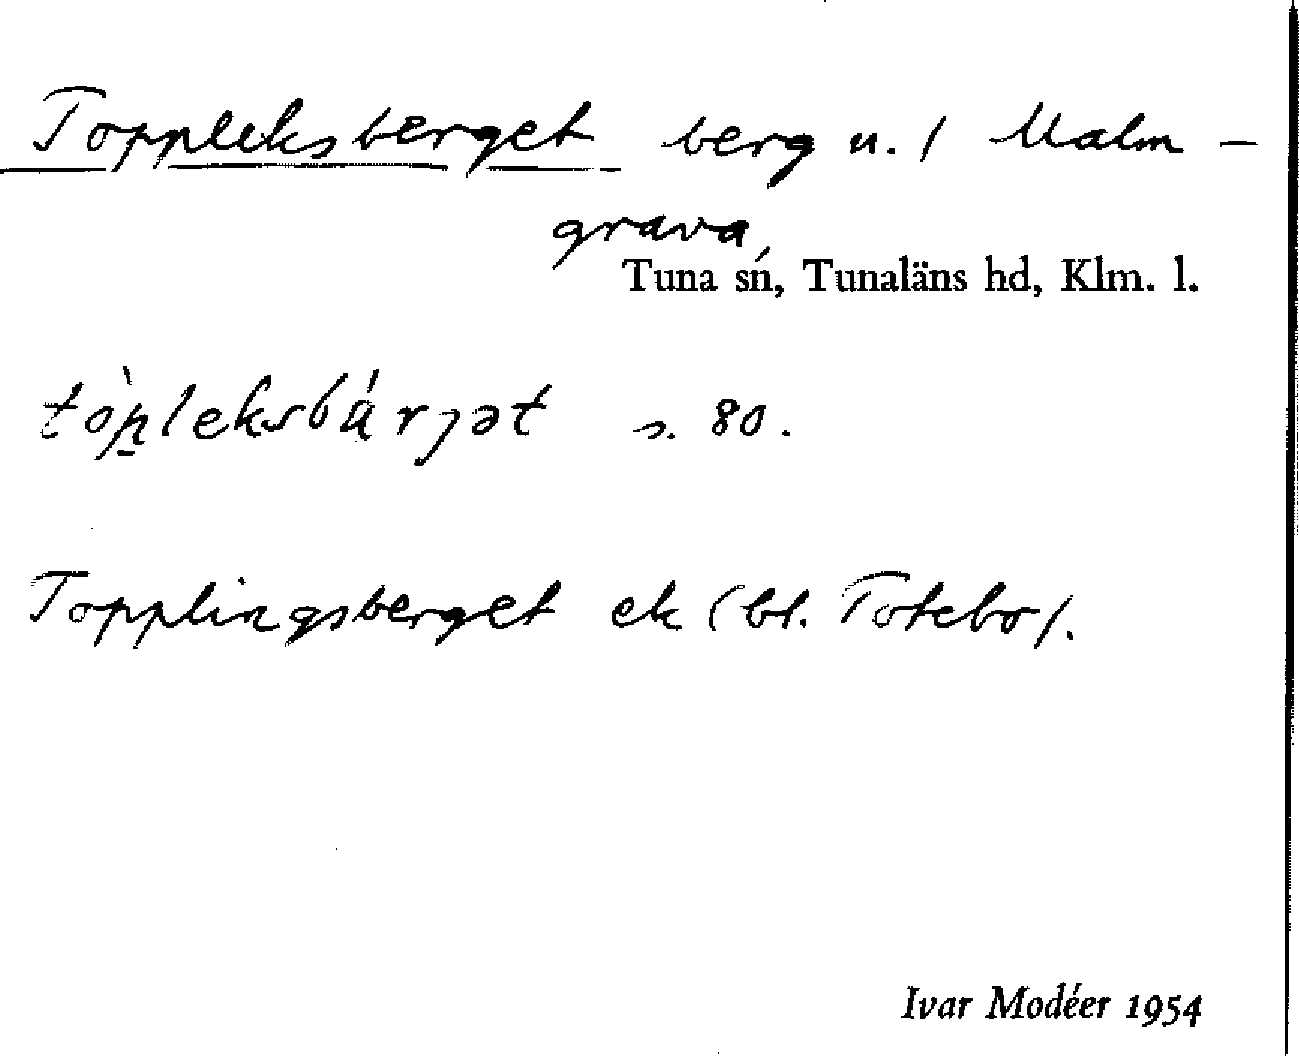 Toppleksberget berg u. / Malm-
grava,
Tuna sn, Tunaläns hd, Klm. l.
tòp̠leksbá̈rjət s. 80.
Topplingsberget ek (bl. Totebo).
Ivar Modéer 1954